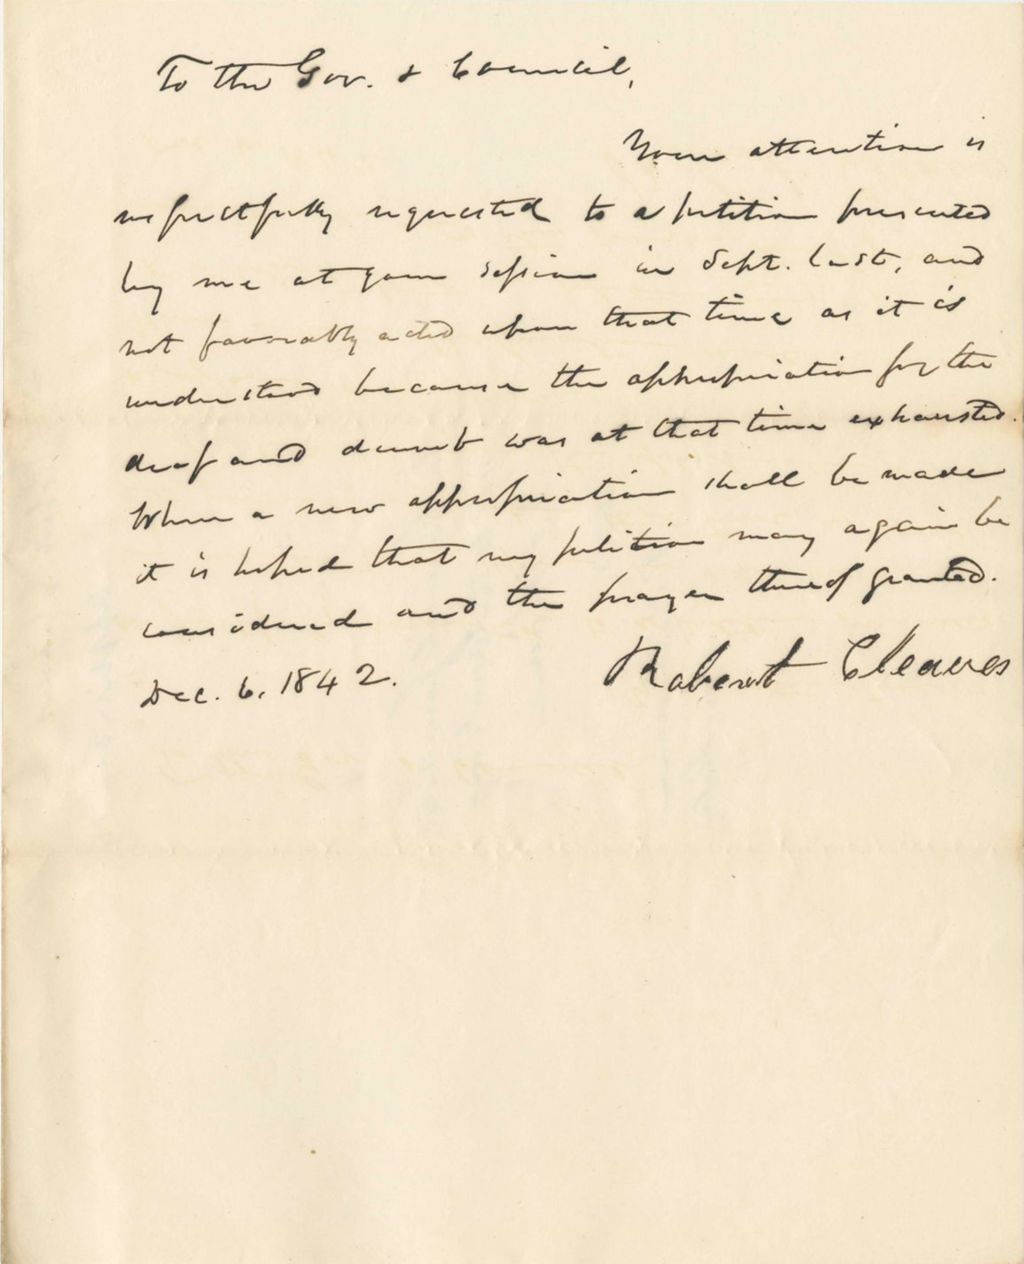 To the Gov. & Council,
Your attention is
respectfully requested to a petition presented
by me at your session in Sept. last, and
not favorably acted upon that time as it is
understood because the appropriation for the
deaf and dumb was at that time exhausted.
When a new appropriation shall be made
it is hoped that my petition may again be
considered and the prayer thereof granted.
Dec. 6, 1842. Robert Cleaves